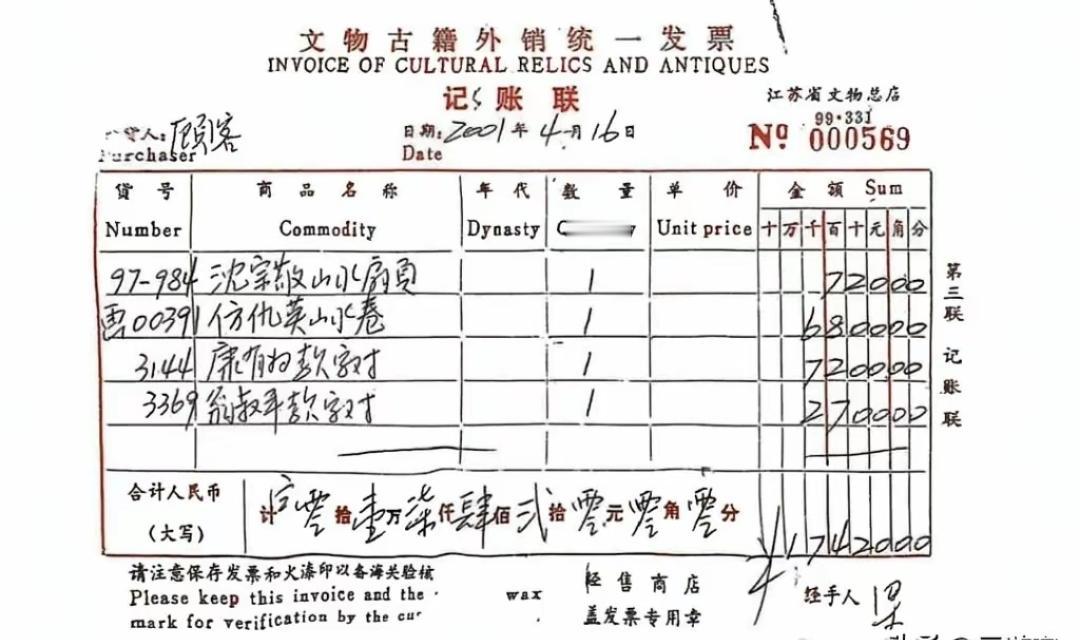 文物古籍外销统一发票
INVOICE OF CULTURAL RELICS AND ANTIQUES
记账联
江苏省文物总店
99·331
货人: 顾客
Purchaser
日期: 2001年4月16日
Date
Nº 000569
货号 商品名称 年代 数量 单价 金额 Sum
Number Commodity Dynasty Unit price 十 万 千 百 十 元 角 分
97-984 沈宗敬山水扇页 1 72000
书00391 仿仇英山水卷 1 680000
3144 康有为款字对 1 720000
3369 翁叔平款字对 1 270000
合计人民币 (大写) 计 零拾壹万柒仟肆佰贰拾零元零角零分 ¥1742000
请注意保存发票和火漆印以备海关验核
Please keep this invoice and the wax
mark for verification by the
经售商店
盖发票专用章
经手人 梁
第三联 记账联